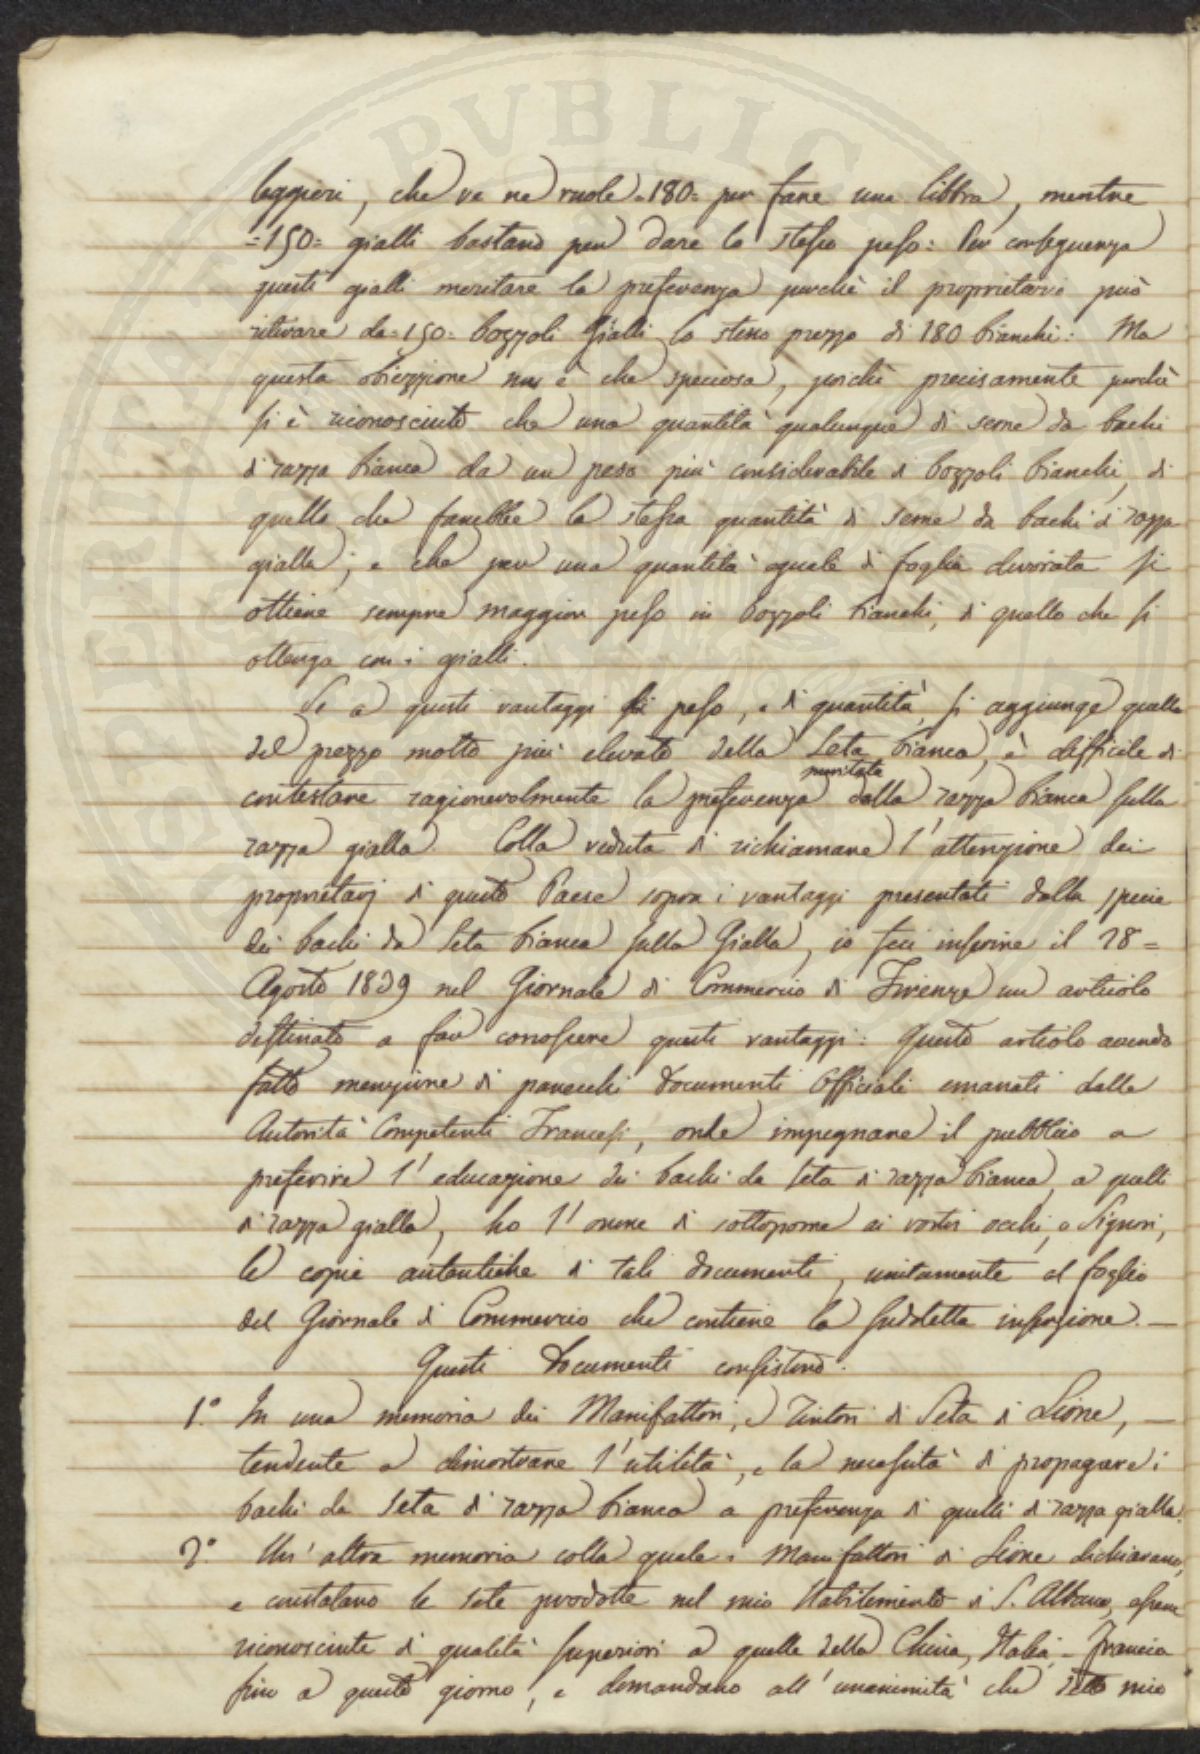 leggieri, che ve ne vuole =180= per fare una libbra, mentre
=150= gialli bastano per dare lo stesso peso: Per conseguenza
questi gialli meritare la preferenza perchè il proprietario può
ritirare da =150= bozzoli Gialli lo stesso prezzo di 180 bianchi: Ma
questa obiezzione non è che speciosa, poichè precisamente perchè
si è riconosciuto che una quantità qualunque di seme da bachi
di razza bianca da un peso più considerabile di bozzoli bianchi, di
quello che farebbe la stessa quantità di seme da bachi di razza
gialla; e che per una quantità eguale di foglia divorata si
ottiene sempre maggior peso in bozzoli bianchi, di quello che si
ottenga con i gialli.
Se a questi vantaggi di peso, e di quantità, si aggiunge quello
del prezzo molto più elevato della Seta bianca, è difficile di
meritata
contestare ragionevolmente la preferenza dalla razza bianca sulla
razza gialla. Colla veduta di richiamare l'attenzione dei
proprietarj di questo Paese sopra i vantaggi presentati dalla specie
dei bachi da Seta bianca sulla Gialla, io feci inserire il 28=
Agosto 1839 nel Giornale di Commercio di Firenze un articolo
destinato a far conoscere questi vantaggi: Questo articolo avendo
fatto menzione di parecchi Documenti Officiali emanati dalle
Autorità Competenti Francesi, onde impegnare il pubblico a
preferire l'educazione dei bachi da Seta di razza bianca, a quelli
di razza gialla, ho l'onore di sottoporre ai vostri occhi, o Signori,
le copie autentiche di tali documenti, unitamente al foglio
del Giornale di Commercio che contiene la sudetta inserzione. —
Questi Documenti consistono:
1.° In una memoria dei Manifattori, e Tintori di Seta di Lione, —
tendente a dimostrare l'utilità, e la necessità di propagare i
bachi da Seta di razza bianca a preferenza di quelli di razza gialla.
2.° Un'altra memoria colla quale i Manifattori di Lione dichiarano,
e constatano le sete prodotte nel mio Stabilimento di S. Albano, essere
riconosciute di qualità superiori a quelle della China, Italia, e Francia
fino a questo giorno, e domandano all'unanimità che detto mio